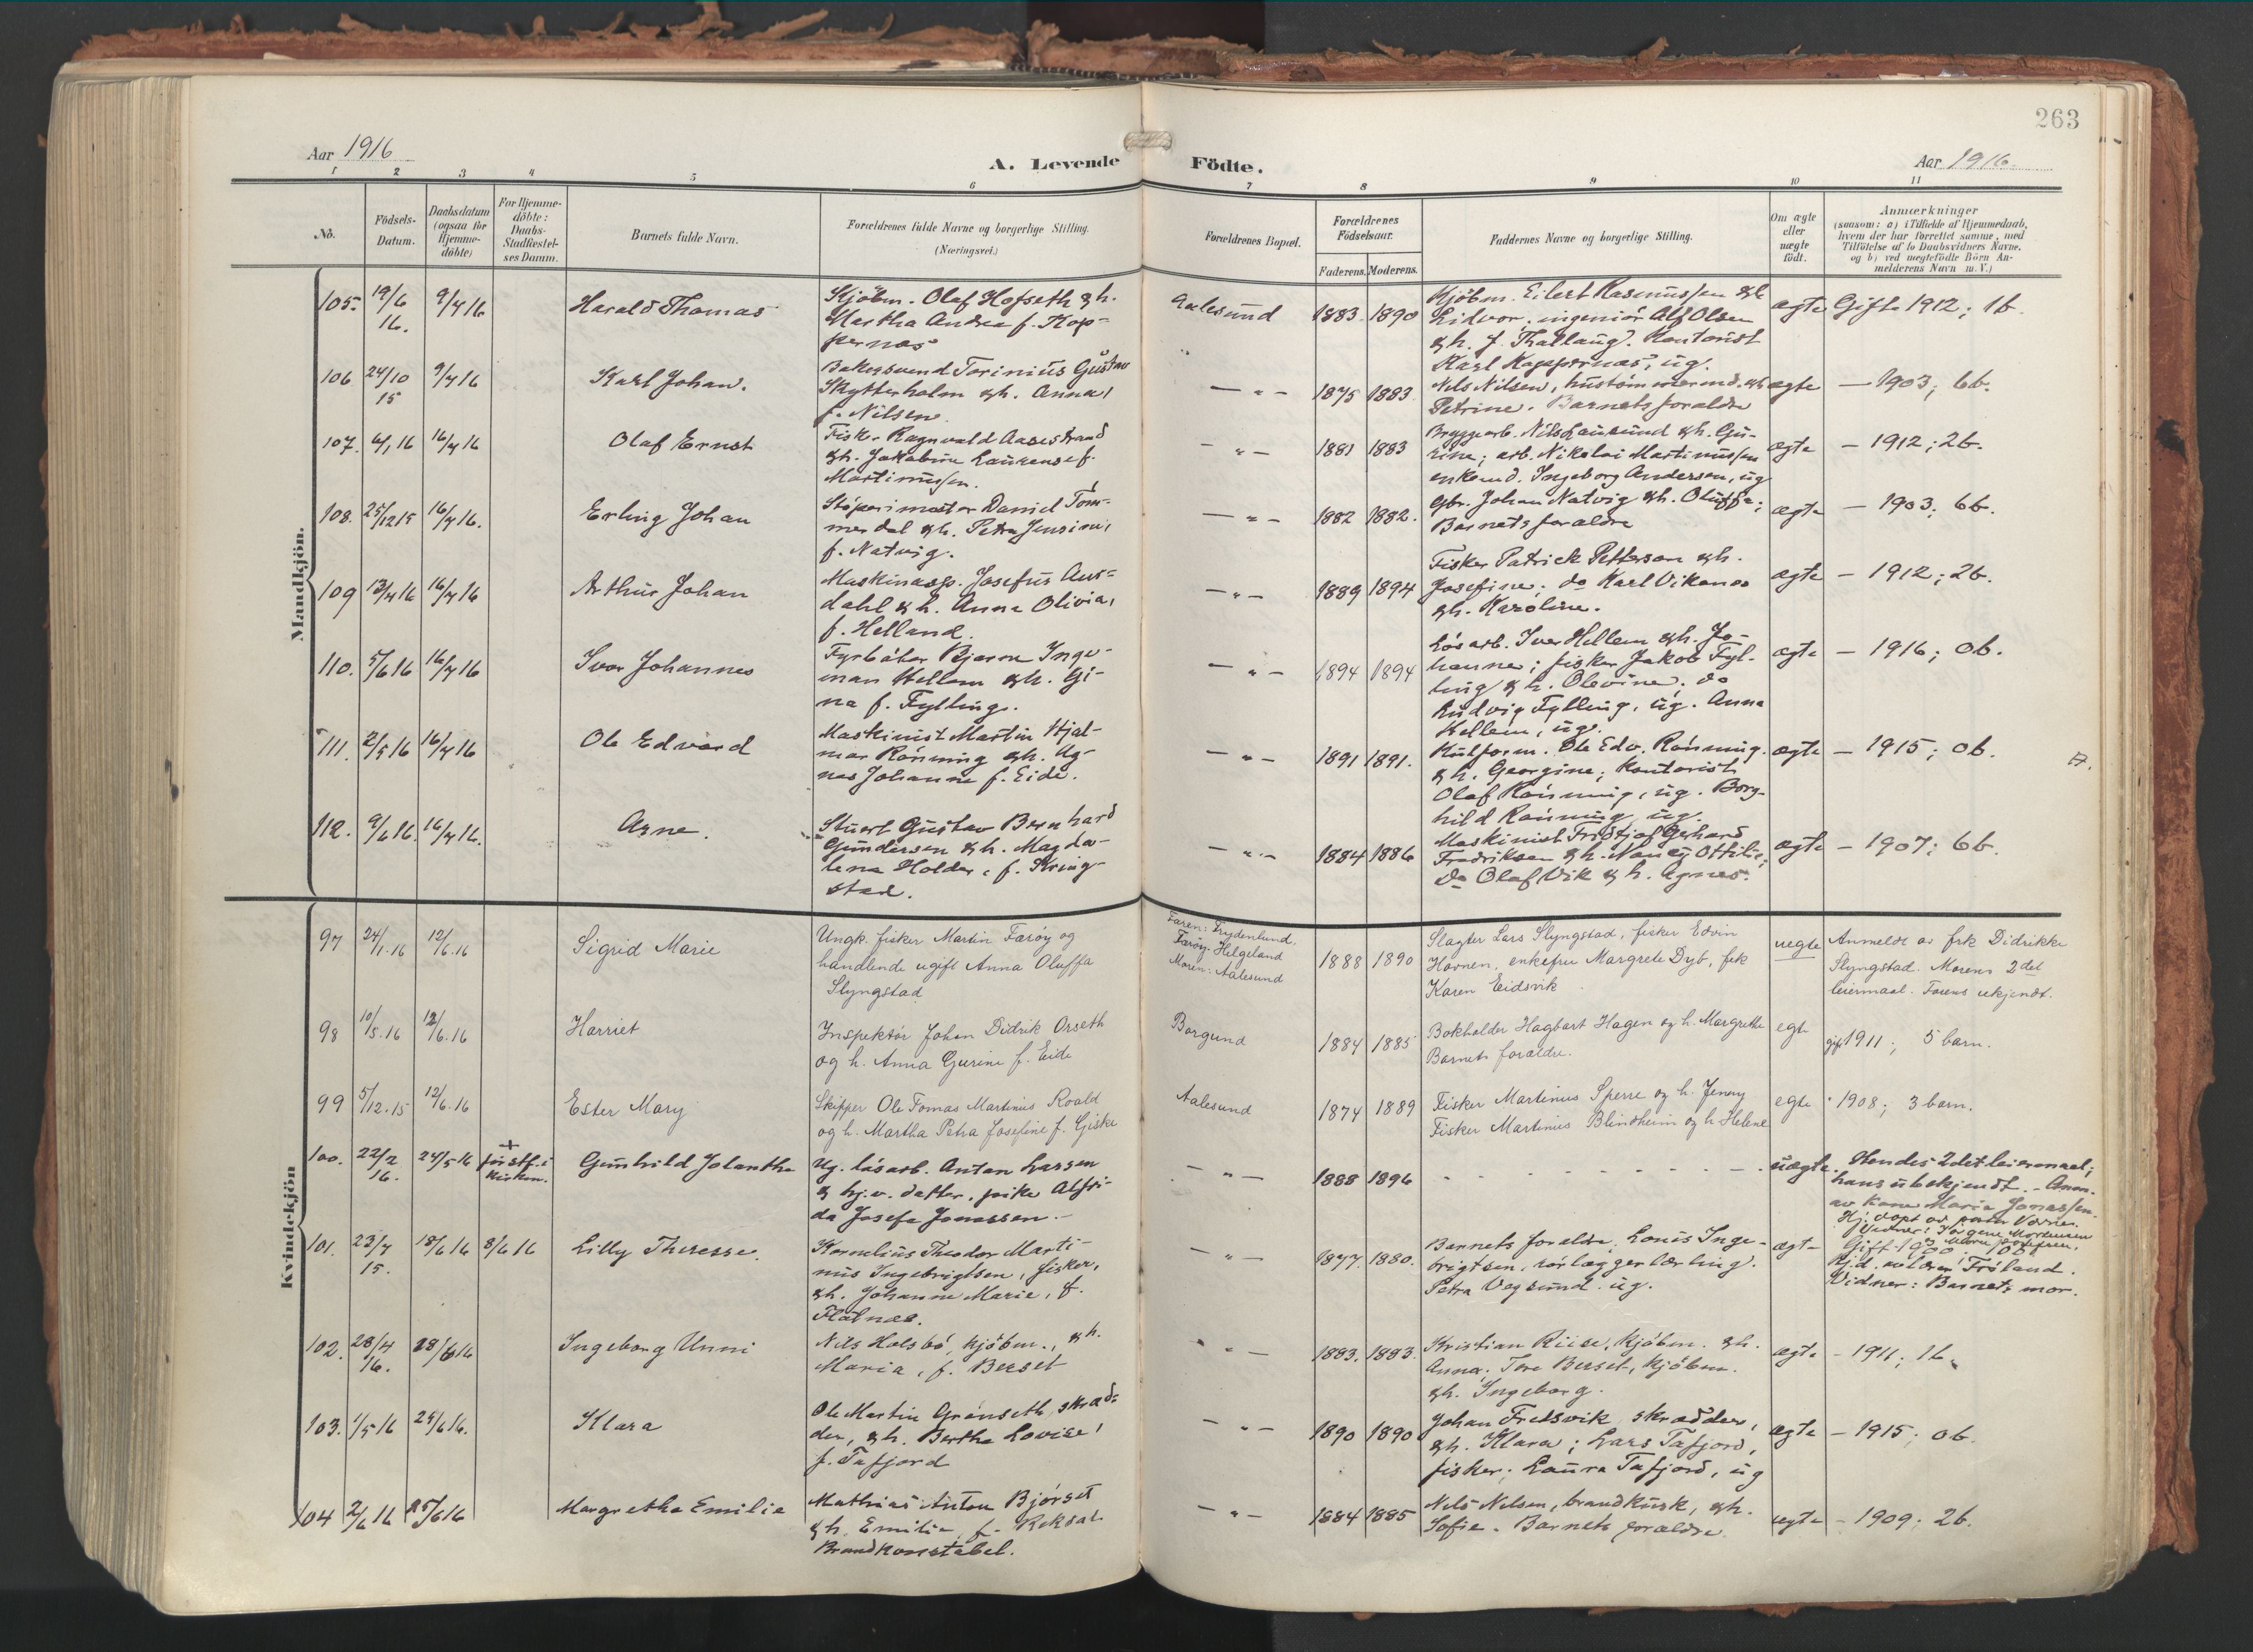 263
Aar 1916
A. Levende Födte.
Aar 1916.
1 2 3 4 5 6 7 8 9 10 11
No.
Födsels-Datum.
Daabsdatum (ogsaa for Hjemme-döbte)
For Hjemme-döbte: Daabs-Stadfæstel-ses Datum.
Barnets fulde Navn.
Forældrenes fulde Navne og borgerlige Stilling. (Næringsvei.)
Forældrenes Bopæl.
Forældrenes Födselsaar.
Faderens. Moderens.
Faddernes Navne og borgerlige Stilling.
Om ægte eller uægte födt.
Anmærkninger
(saasom: a) i Tilfælde af Hjemmedaab,
hvem der har forrettet samme, med
Tilföielse af to Daabsvidners Navne,
og b) ved uægtefödte Börn An-
melderens Navn m. V.)
Mandkjön.
105. 19/6 16. 9/7 16 Harald Thomas
Kjöbm. Olaf Hofseth & h.
Martha Andrea f. Kop-
pernæs
Aalesund 1883. 1890
Kjöbm. Eilert Rasmussen & h.
Lidvor, ingeniör Alf Olsen
& h. f. Thallaug. Kontorist
Karl Koppernæs, ug.
ægte Gift 1912; 1 b.
106 24/10 15 9/7 16 Karl Johan.
Bakersvend Torinius Gustav
Skytterholm & h. Anna,
f. Nilsen.
— " — 1875 1883.
Nils Nilsen, hustömmermd. & h.
Petrine. Barnets forældre
ægte — 1903; 6 b.
107. 6/1 16 16/7 16 Olaf Ernst
Fisker Ragnvald Aasestrand
& h. Jakobine Laurense f.
Martinussen.
— " — 1881 1883
Bryggearb. Nils Lausund & h. Gu-
rine; arb. Nikolai Martinussen
enkemd. Ingeborg Andersen, ug
ægte — 1912; 2 b.
108. 25/12 15 16/7 16. Erling Johan
Stöperimester Daniel Tom-
merdal & h. Petra Jensine,
f. Natvig.
— " — 1882 1882.
Gbr. Johan Natvig & h. Oluffa;
Barnets forældre
ægte — 1903; 6 b.
109 13/4 16 16/7 16 Arthur Johan
Maskinasp. Josefus Aur-
dahl & h. Anna Olivia,
f. Helland.
— " — 1889 1894
Fisker Patrick Petterson & h.
Josefine; do Karl Vikanes
& h. Karoline.
ægte — 1912; 2 b.
110. 5/6 16 16/7 16 Ivar Johannes
Fyrböter Bjarne Inge-
man Hellem & h. Gi-
na f. Fylling.
— " — 1894 1894
Lösarb. Iver Hellem & h. Jo-
hanne; fisker Jakob Fyl-
ling & h. Olevine. do
Ludvig Fylling, ug. Anna
Hellem, ug.
ægte — 1916; 0 b.
111. 2/5 16 16/7 16 Ole Edvard
Maskinist Martin Hjal-
mar Rönning & h. Ag-
nes Johanne f. Eide.
— " — 1891 1891.
Kulform. Ole Edv. Rönning.
& h. Georgine; kontorist
Olaf Rönning, ug. Borg-
hild Rönning, ug.
ægte — 1915; 0 b.
112. 9/6 16. 16/7 16. Arne.
Stuert Gustav Bernhard
Gundersen & h. Magda-
lena Holder, f. Kring-
stad.
— " — 1884 1886
Maskinist Fridtjof Gerhard
Fredriksen & h. Nancy Ottilie;
do Olaf Vik & h. Agnes.
ægte — 1907; 6 b.
Kvindekjön
97 24/1.16 12/6.16 Sigrid Marie
Ungk. fisker Martin Færöy og
handlende ugift Anna Oluffa
Slyngstad
Faren: Frydenlund.
Færöy. Helgeland
Moren: Aalesund
1888 1890
Slagter Lars Slyngstad, fisker Edvin
Havnen, enkefru Margrete Dyb, frk
Karen Eidsvik.
uegte
Anmeldt av frk Didrikke
Slyngstad. Morens 2det
leiermaal. Farens ukjendt.
98 10/5.16 12/6.16 Harriet
Inspektör Johan Didrik Orseth
og h. Anna Gurine f. Eide
Borgund 1884 1885
Bokholder Hagbart Hagen og h. Margrethe
Barnets forældre.
egte gift 1911; 5 barn.
99 5/12.15 12/6.16 Ester Mary
Skipper Ole Tomas Martinus Roald
og h. Martha Petra Josefine f. Giske
Aalesund 1874 1889
Fisker Martinus Sperre og h. Jenny
Fisker Martinus Blindheim og h. Helene
egte " 1908; 3 barn.
100. 22/2 16. 24/5 16 Gunhild Jolantha
Ug. lösarb. Anton Larsen
& hj.v. datter, pike Alfri-
da Josefa Jonassen.
— " — 1888 1896
uægte. Hendes 2det leiermaal;
hans ubekjendt. - Anm.
av kone Maria Jonassen.
101. 23/7 15. 18/6 16 8/6 16 Lilly Theresse.
Kornelius Theodor Marti-
nus Ingebrigtsen, fisker,
& h. Johanne Marie, f.
Flatnæs.
— " — 1877. 1880.
Barnets forældre, Louis Inge-
brigtsen, rörlæggerlærling.
Petra Vegsund. ug.
ægt-
Gift 1900
Vidner: Barnets mor.
102. 28/4 16. 28/6 16 Ingeborg Unni
Nils Holsbö, kjöbm., & h.
Maria, f. Berset
— " — 1883. 1883.
Kristian Riise, kjöbm. & h.
Anna. Tore Berset, kjöbm.
& h. Ingeborg.
ægte — 1911; 1 b.
103. 1/5 16 25/6 16. Klara
Ole Martin Grönseth, skræd-
der, & h. Berthe Lovise,
f. Tafjord
— " — 1890 1890
Johan Fretsvik, skrædder,
& h. Klara; Lars Tafjord,
fisker; Laura Tafjord, ug
ægte — 1915; 0 b.
104 2/6 16 25/6 16 Margrethe Emilie
Mathias Anton Bjørset
& h. Emilie, f. Reksal
Brandkonstabel.
— " — 1884 1885
Nils Nilsen, brandkusk, & h.
Sofie. Barnets forældre.
ægte — 1909; 2 b.